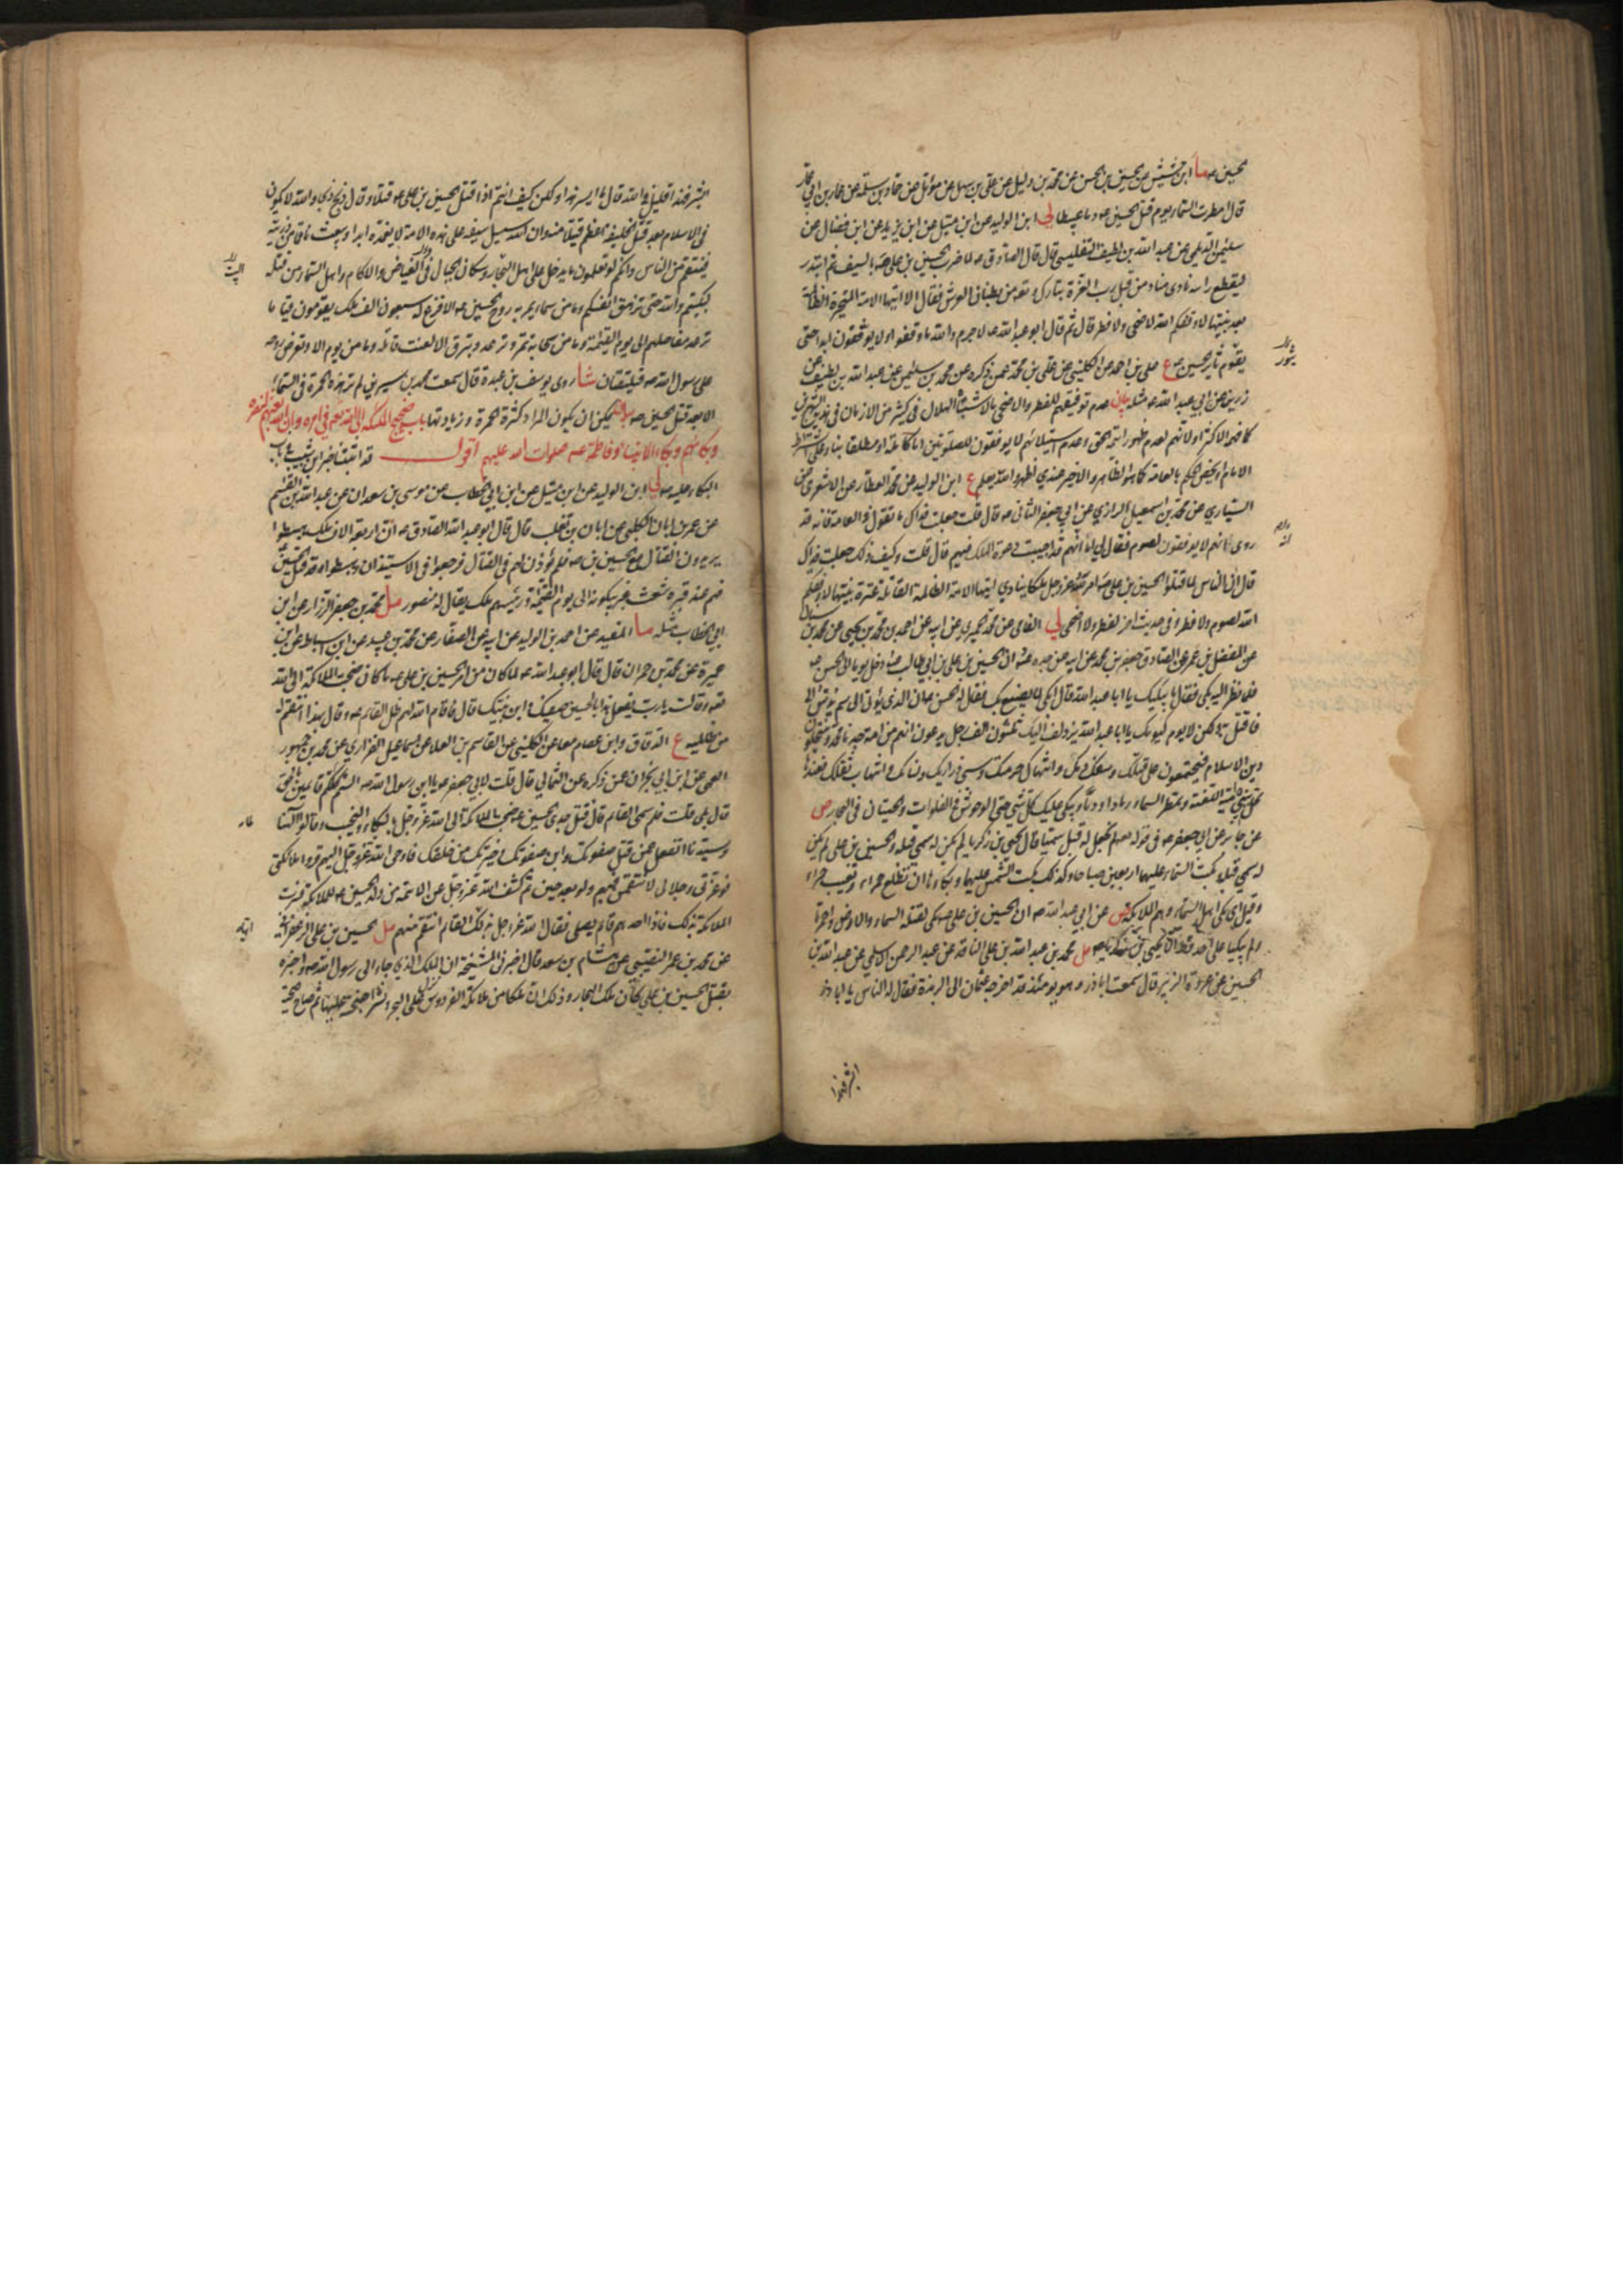 الحسين ع ما ابن حشيش عن الحسين بن الحسن عن محمد بن دليل عن علي بن سهل عن مؤمل عن حماد بن سلمة عن عمار بن ابي عمار
قال امطرت السماء يوم قتل الحسين ع دما عبيطا لي ابن الوليد عن ابن متيل عن ابن يزيد عن ابن فضال عن
سليمن الديلمي عن عبد الله بن لطيف التفليسي قال قال الصادق ع لما ضرب الحسين بن علي ع بالسيف ثم ابتدر
ليقطع راسه نادى مناد من قبل رب العزة تبارك وتع من بطنان العرش فقال الا ايتها الامة المتحيرة الظالمة
بعد نبيها لا وفقكم الله لاضحى ولا فطر قال ثم قال ابو عبد الله ع لا جرم والله ما وفقوا ولا يوفقون ابدا حتى
يقوم ثاير الحسين ع ع علي بن احمد عن الكليني عن علي بن محمد عمن ذكره عن محمد بن سليمن عن عبد الله بن لطيف عن
رزين عن ابي عبد الله ع مثله بيان عدم توفيقهم للفطر والاضحى اما لاشتباه الهلال في كثير من الازمان في
كما فهمه الاكثر او لانهم لعدم ظهور ائمة الحق وعدم استيلائهم لا يوفقون للصلوتين اما كاملة او مطلقا بناء على اشتراط
الامام او يخص الحكم بالعامة كما هو الظاهر والاخير عندي اظهر والله يعلم ع ابن الوليد عن محمد العطار عن الاشعري عن
السياري عن محمد بن اسمعيل الرازي عن ابي جعفر الثاني ع قال قلت جعلت فداك ما تقول في العامة فانه قد
روي انهم لا يوفقون لصوم فقال لي اما انهم قد اجيبت دعوة الملك فيهم قال قلت وكيف ذلك جعلت فداك
قال ان الناس لما قتلوا الحسين بن علي ع امر الله عز وجل ملكا ينادي ايتها الامة الظالمة القاتلة عترة نبيها لا وفقكم
الله لصوم ولا فطر وفي حديث اخر لفطر ولا اضحى لي الفامي عن محمد الحميري عن ابيه عن احمد بن محمد بن يحيى عن محمد بن سنان
عن المفضل بن عمر عن الصادق جعفر بن محمد عن ابيه عن جده ع ان الحسين بن علي بن ابي طالب ع دخل يوما الى الحسن ع
فلما نظر اليه بكى فقال ما يبكيك يا ابا عبد الله قال ابكي لما يصنع بك فقال له الحسن ع ان الذي يؤتى الي سم يدس الي
فاقتل به ولكن لا يوم كيومك يا ابا عبد الله يزدلف اليك ثلثون الف رجل يدعون انهم من امة جدنا محمد وينتحلون
دين الاسلام فيجتمعون على قتلك وسفك دمك وانتهاك حرمتك وسبي ذراريك ونسائك وانتهاب ثقلك فعندها
تحل ببني امية اللعنة وتمطر السماء رمادا ودما ويبكي عليك كل شيء حتى الوحوش في الفلوات والحيتان في البحار ص
عن جابر عن ابي جعفر ع في قوله تعالى لم نجعل له من قبل سميا قال يحيى بن زكريا لم يكن له سمي قبله والحسين بن علي لم يكن
له سمي قبله وبكت السماء عليهما اربعين صباحا وكذلك بكت الشمس عليهما وبكاؤها ان تطلع حمراء وتغيب حمراء
وقيل اي بكى اهل السماء وهم الملائكة ص عن ابي عبد الله ع ان الحسين بن علي ع بكى لقتله السماء والارض واحمرتا
ولم يبكيا على احد قط الا يحيى بن زكريا ع مل محمد بن عبد الله بن علي الناقد عن عبد الرحمن الاسلمي عن عبد الله بن
الحسين عن عروة بن الزبير قال سمعت اباذر وهو يومئذ قد اخرجه عثمان الى الربذة فقال له الناس يا اباذر
ابشر فهذا
ابشر فهذا قليل في الله قال ما ايسر هذا ولكن كيف انتم اذا قتل الحسين بن علي ع قتلا او قال ذبح ذبحا والله لا يكون
في الاسلام بعد قتل الخليفة اعظم قتيلا منه وان الله سيسل سيفه على هذه الامة لا يغمده ابدا ويبعث ناقما من ذريته
فينتقم من الناس وانكم لو تعلمون ما يدخل على اهل البحار وسكان الجبال في الغياض والاكام واهل السماء من قتله
لبكيتم والله حتى تزهق انفسكم وما من سماء يمر به روح الحسين ع الا فزع له سبعون الف ملك يقومون قياما
ترعد مفاصلهم الى يوم القيمة وما من سحابة تمر وترعد وتبرق الا لعنت قاتله وما من يوم الا وتعرض روحه
على رسول الله ص فيلتقيان شا روى يوسف بن عبدة قال سمعت محمد بن سيرين يقول لم تر هذه الحمرة في السماء
الا بعد قتل الحسين ع بيان يمكن ان يكون المراد كثرة الحمرة وزيادتها باب ضجيج الملائكة الى الله تع في امره وان الله بعثهم لنصره
وبكائهم وبكاء الانبياء وفاطمة ع صلوات الله عليهم اقول قد اثبتنا خبر ابن شبيب في باب
البكاء عليه ع لي ابن الوليد عن ابن متيل عن ابن ابي الخطاب عن موسى بن سعدان عن عبد الله بن القسم
عن عمر بن ابان الكلبي عن ابان بن تغلب قال قال ابو عبد الله الصادق ع ان اربعة الاف ملك هبطوا
يريدون القتال مع الحسين بن ع فلم يؤذن لهم في القتال فرجعوا في الاستيذان وهبطوا وقد قتل الحسين
فهم عند قبره شعث غبر يبكونه الى يوم القيمة ورئيسهم ملك يقال له منصور مل محمد بن جعفر الرزاز عن ابن
ابي الخطاب مثله ما المفيد عن احمد بن الوليد عن ابيه عن الصفار عن محمد بن عبيد عن ابن اسباط عن ابن
عميرة عن محمد بن حمران قال قال ابو عبد الله ع لما كان من امر الحسين بن علي ع ما كان ضجت الملائكة الى الله
تع وقالت يا رب يفعل هذا بالحسين صفيك وابن نبيك قال فاقام الله لهم ظل القائم ع وقال بهذا انتقم له
من ظالميه ع الدقاق وابن عصام معا عن الكليني عن القاسم بن العلا عن اسماعيل الفزاري عن محمد بن جمهور
العمي عن ابن ابي نجران عمن ذكره عن الثمالي قال قلت لابي جعفر ع يا ابن رسول الله ص الستم كلكم قائمين بالحق
قال بلى قلت فلم سمي القائم قائما قال لما قتل جدي الحسين ع ضجت الملائكة الى الله عز وجل بالبكاء والنحيب وقالوا الهنا
وسيدنا اتغفل عمن قتل صفوتك وابن صفوتك وخيرتك من خلقك فاوحى الله عز وجل اليهم قروا ملائكتي
فوعزتي وجلالي لانتقمن منهم ولو بعد حين ثم كشف الله عز وجل عن الائمة من ولد الحسين ع للملائكة فسرت
الملائكة بذلك فاذا احدهم قائم يصلي فقال الله عز وجل بذلك القائم انتقم منهم مل الحسين بن علي الزعفراني
عن محمد بن عمر النصيبي عن هشام بن سعد قال اخبرني المشيخة ان الملك الذي جاء الى رسول الله ص واخبره
بقتل الحسين بن علي كان ملك البحار وذلك ان ملكا من ملائكة الفردوس نزل على البحر ونشر اجنحته عليها ثم صاح صيحة